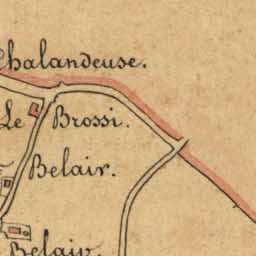 Chalandeuse.
Le Brossi.
Belair.
Belair.